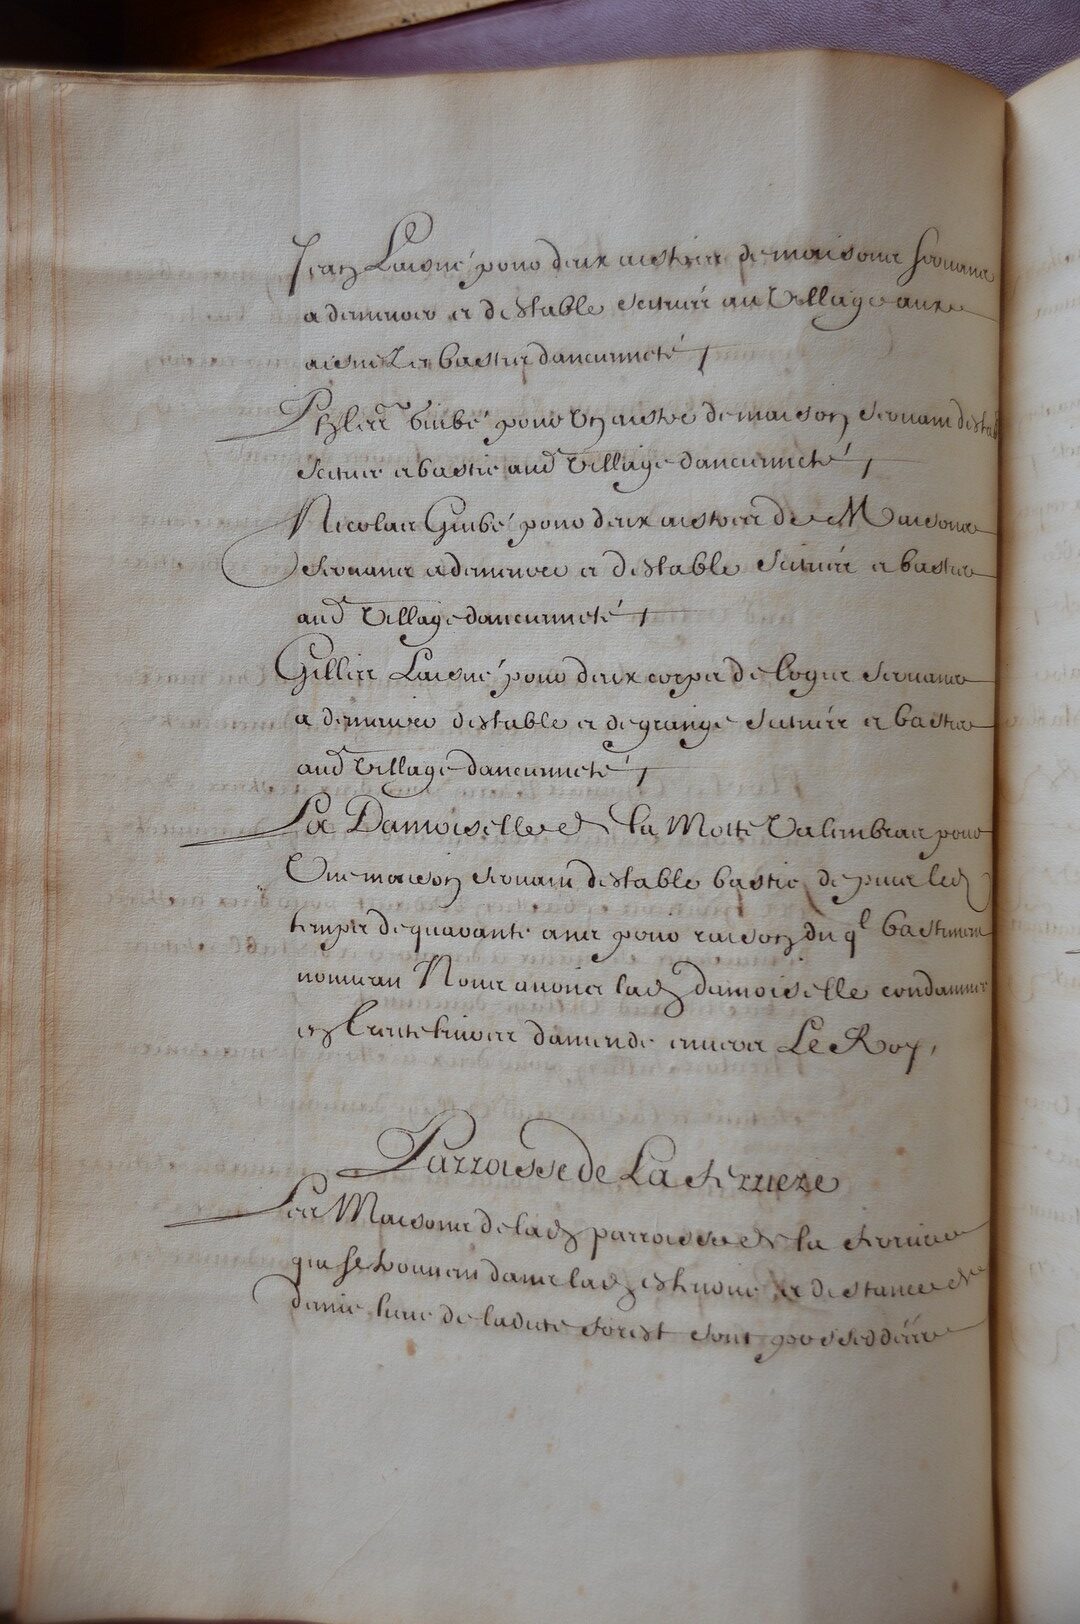 Jean Laisné pour deux aistres de maisons servans
a demeure et destable scitués au Village aux
aisnez et bastis dancienneté
Guibé pour Un aistre de maison servant destable
scitué et bastie aud Village dancienneté
Nicolas Guibé pour deux aistres de Maisons
servans a demeure et destable scitués et bastis
aud Village dancienneté
Gilles Laisné pour deux corps de logis servans
a demeure destable et de grange scitués et bastis
aud Village dancienneté
La Damoiselle de la Motte Valembras pour
Une maison servant destable bastie depuis led
temps de quarante ans pour raison du ql bastiment
nouveau Nous avons lad damoiselle condamnée
en trente livres damende envers Le Roy,
Parroisse de La ferriere
Les Maisons de lad parroisse de la ferriere
qui se trouvent dans lad et distance de
demie lieue de ladite forest sont posseddées